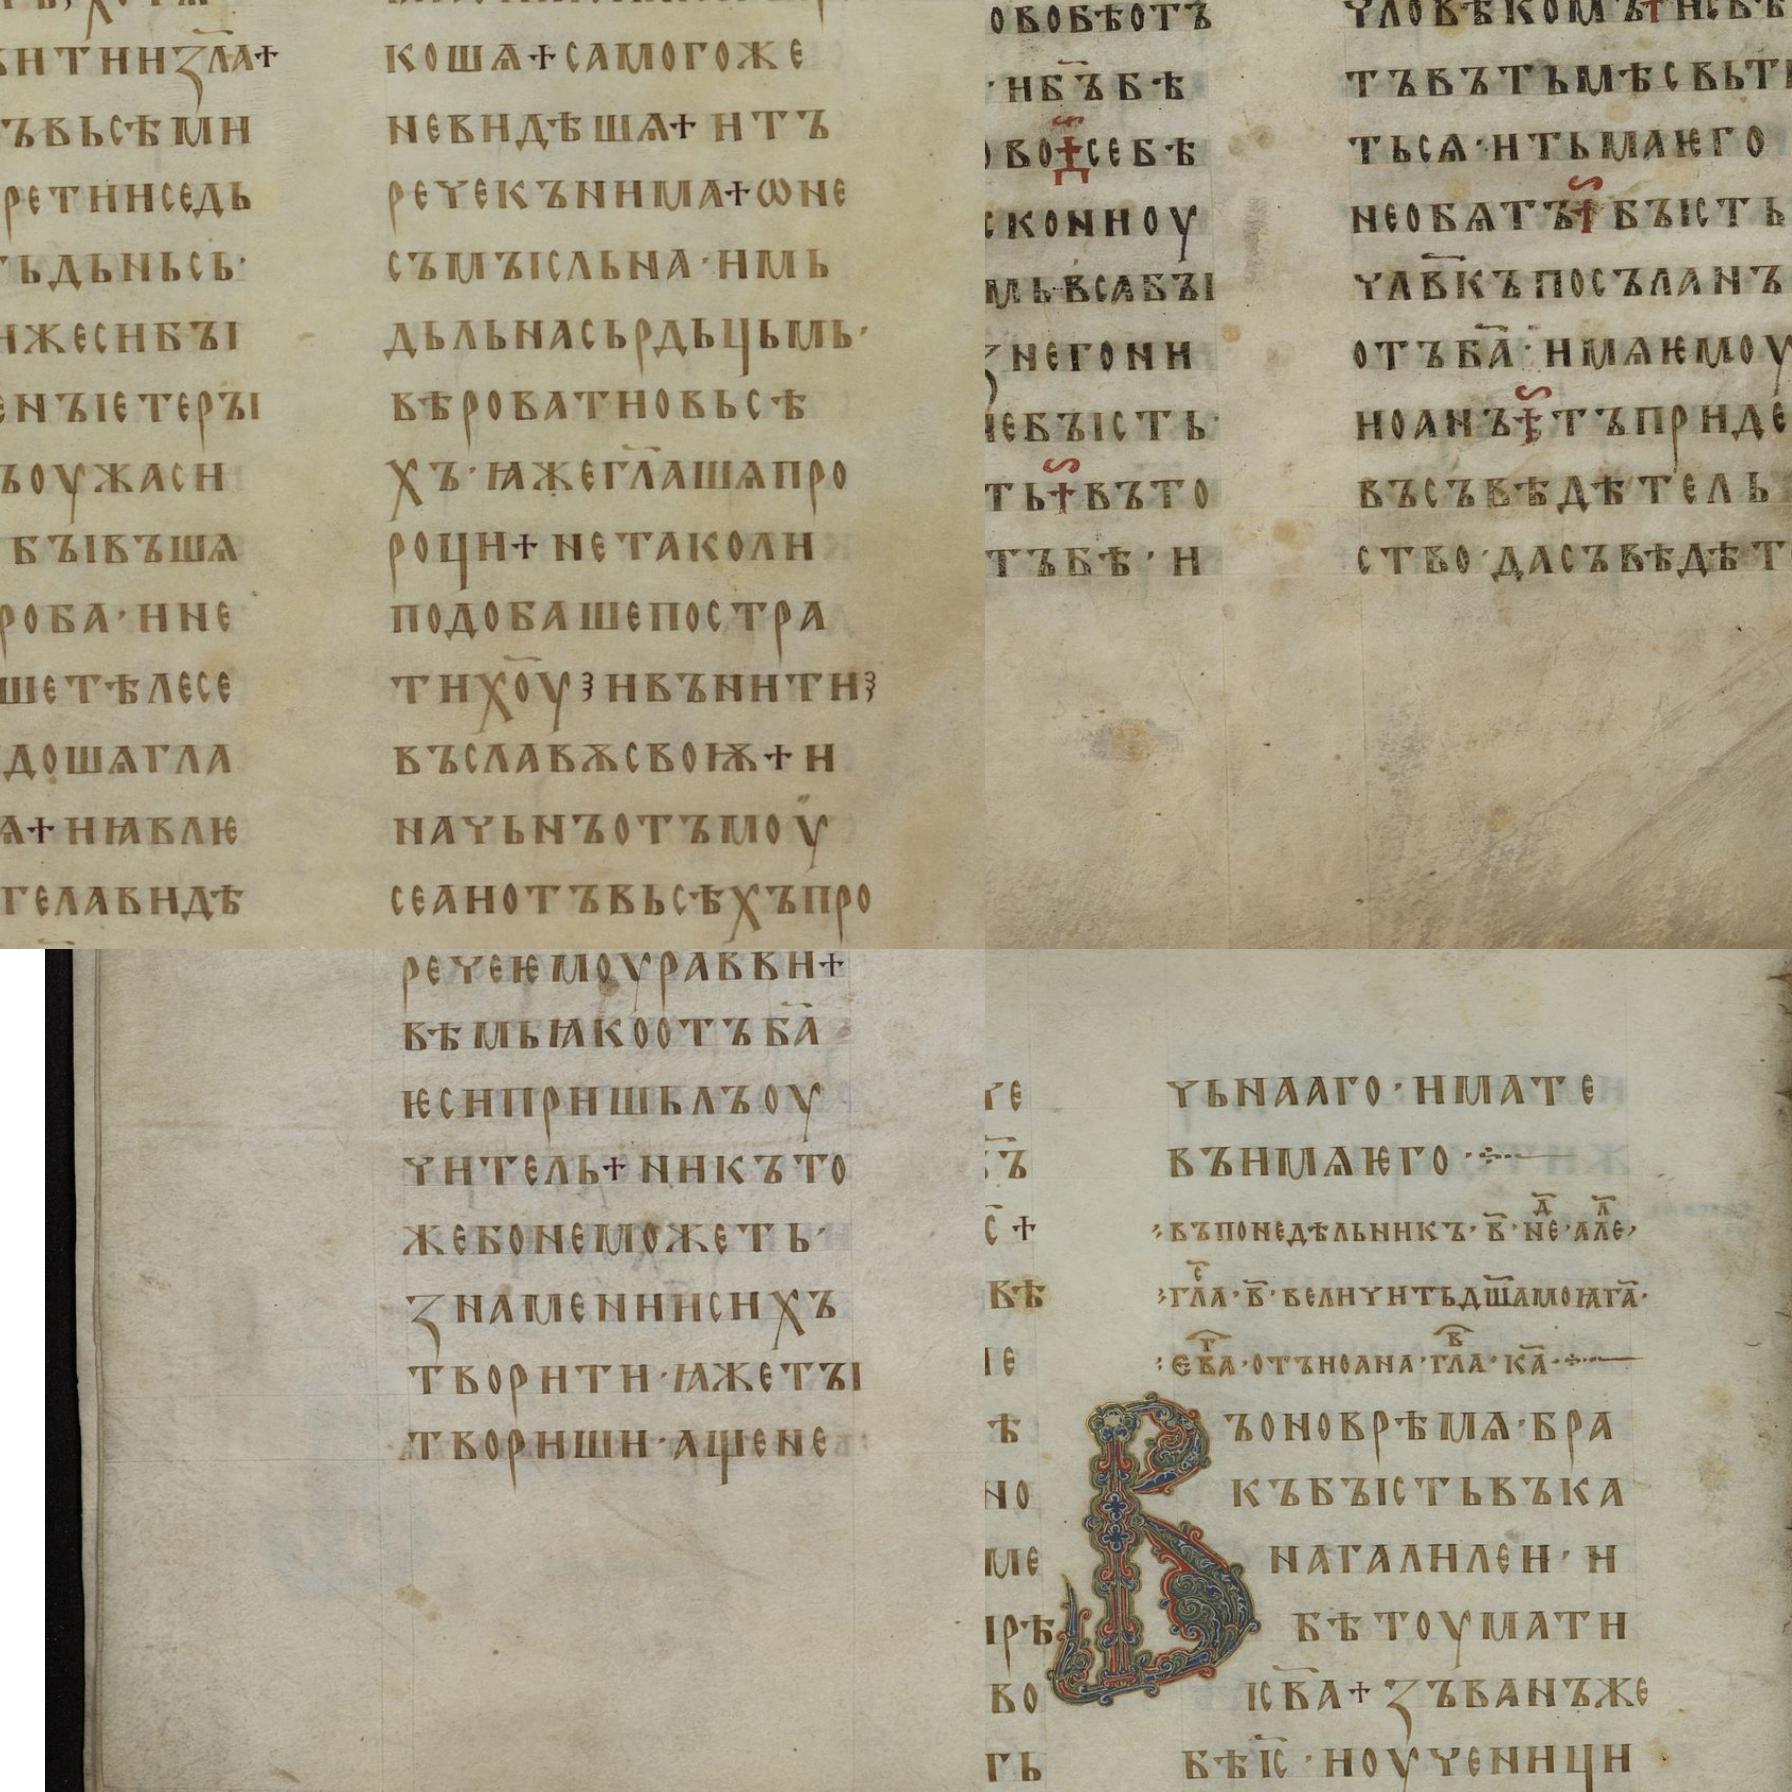 витииꙁл҃а+
ъвьсѣми
ретиіседь
ьдьньсь·
ижесибꙑ
енꙑетерꙑ
ъоужаси
бꙑвъшѧ
роба·ине
шетѣлесе
дошѧгла
ѧ+иꙗвлѥ
гелавидѣ
кошѧ+самогоже
невидѣшѧ+итъ
речекънима+ѡне
съмꙑсльна·имь
дьльнасьрдьцьмь·
вѣроватиовьсѣ
хъ·ꙗжегл҃ашѧпро
роци+нетаколи
подобашепостра
тихо҃уꙁивънити
въславѫсвоѭ+и
начьнъотъмоу
сеаиотъвьсѣхъпро
овобѣотъ
·иб҃ъбѣ
ово+себѣ
сконноу
мьвсѧбꙑ
ꙁнегони
небꙑсть·
ть+въто
тъбѣ·и
чловѣкомъ+исвѣ
тъвътьмѣсвьти
тьсѧ·итьмаѥго
необѧтъ+бꙑсть
члв҃къпосъланъ
отъб҃а·имѧѥмоу
иоанъ+тъприде
въсъвѣдѣтель
ство·дасъвѣдѣт
речеѥмоураввн+
вѣмьꙗкоотъб҃а
ѥсипришьлъоу
читель+никъто
жебонеможеть·
ꙁнамениисихъ
творити·ꙗжетꙑ
твориши·ащене
че
ъ
с҃+
вѣ
іе
ѣ
но
ме
ірѣ
во
гь
чьнааго·имате
вънмѧѥго·
въпонедѣльникъ·в҃·не·але
гл҃а·в҃·величитьдш҃амоꙗга҃·
ев҃а·отъиоана·гл҃а·ка҃·
ъоноврѣмѧ·бра
къбꙑстьвъка
нагалилеи·и
бѣтоумати
ісв҃а+ꙁъванъже
бѣіс҃·иоученици